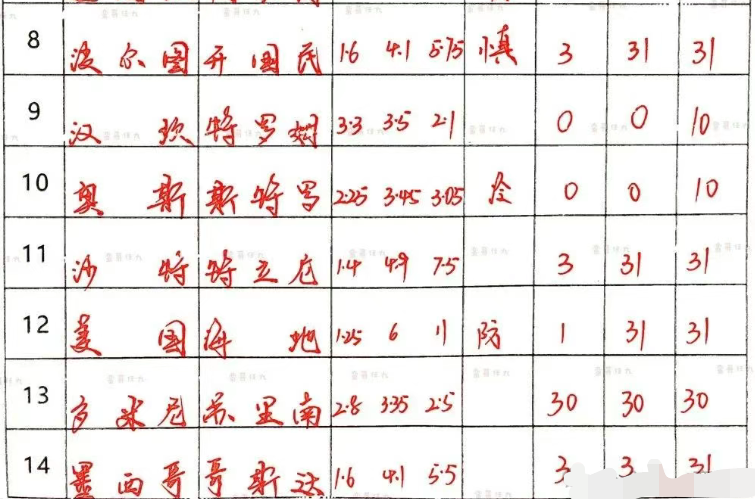 8 波尔图 开国民 1.6 4.1 5.75 慎 3 31 31
9 汉坎 特罗姆 3.3 3.5 2.1 0 0 10
10 奥斯 斯特罗 2.25 3.45 3.05 冷 0 0 10
11 沙特 特立尼 1.4 4.9 7.5 3 31 31
12 美国 海地 1.25 6 11 防 1 31 31
13 多米尼 苏里南 2.8 3.35 2.5 30 30 30
14 墨西哥 哥斯达 1.6 4.1 5.5 3 3 31